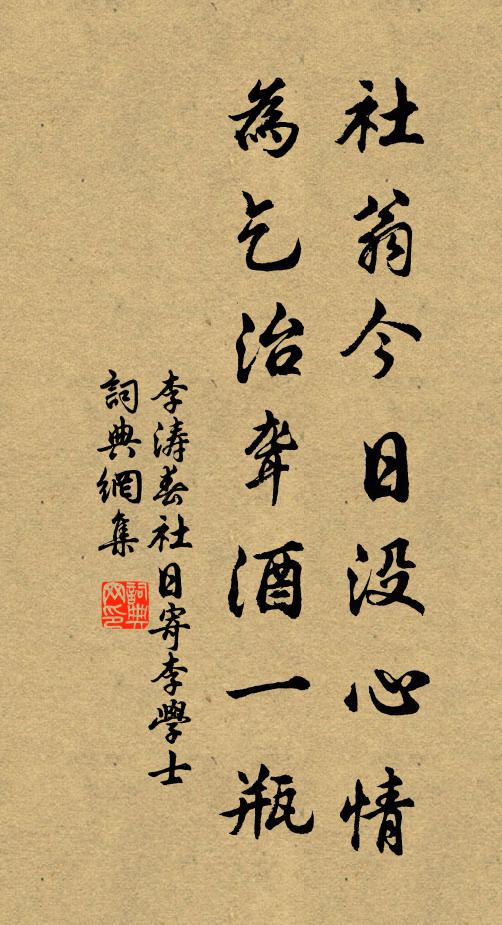 社翁今日没心情
為乞治聾酒一瓶
李濤春社日寄李學士
詞典網集
詞典网印